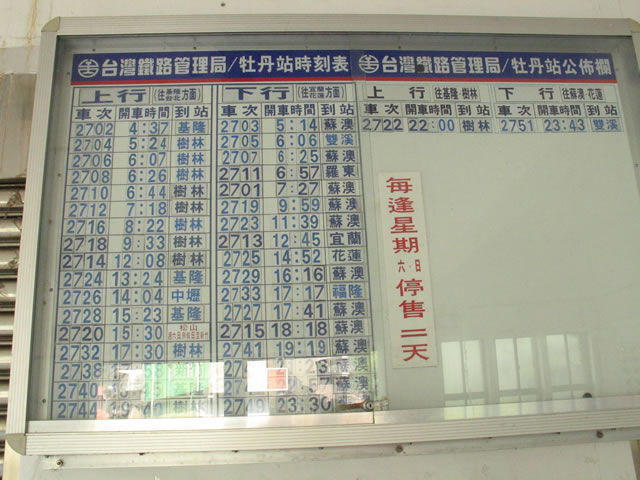 台灣鐵路管理局/牡丹站時刻表
台灣鐵路管理局/牡丹站公佈欄
上行(往基隆台北方面)
車次 開車時間 到站
2702 4:37 基隆
2704 5:24 樹林
2706 6:07 樹林
2708 6:26 樹林
2710 6:44 樹林
2712 7:18 樹林
2716 8:22 樹林
2718 9:33 樹林
2714 12:08 樹林
2724 13:24 基隆
2726 14:04 中壢
2728 15:23 基隆
2720 15:30 松山
2732 17:30 樹林
2738
2740
2744
下行(往宜蘭花蓮方面)
車次 開車時間 到站
2703 5:14 蘇澳
2705 6:06 雙溪
2707 6:25 蘇澳
2711 6:57 羅東
2701 7:27 蘇澳
2719 9:59 蘇澳
2723 11:39 蘇澳
2713 12:45 宜蘭
2725 14:52 花蓮
2729 16:16 蘇澳
2733 17:17 福隆
2727 17:41 蘇澳
2715 18:18 蘇澳
2741 19:19 蘇澳
蘇澳
2749 23:30
上行(往基隆·樹林)
車次 開車時間 到站
2722 22:00 樹林
下行(往蘇澳·花蓮)
車次 開車時間 到站
2751 23:43 雙溪
每逢星期六.日停售二天